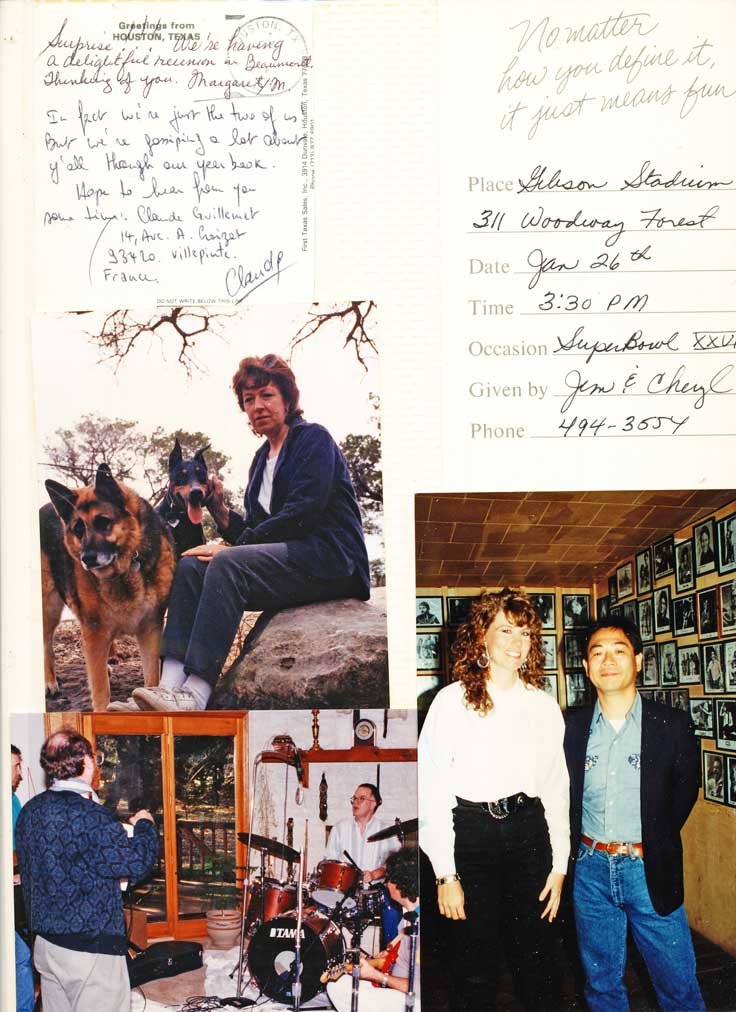 Greetings from
HOUSTON, TEXAS
HOUSTON, TX
Surprise! We're having
a delightful reunion in Beaumont.
Thinking of you. Margaret M.
In fact we're just the two of us
But we're gossiping a lot about
y'all through our year book.
Hope to hear from you
some time. Claude Guillemet
14, Ave. A. Croizat
93420. Villepinte.
France.
Claude
DO NOT WRITE BELOW THIS LINE
First Texas Sales, Inc., 3914 Dunvale, Houston, Texas
No matter
how you define it,
it just means fun
Place Gibson Stadium
311 Woodway Forest
Date Jan 26th
Time 3:30 PM
Occasion SuperBowl XXVI
Given by Jim & Cheryl
Phone 494-3654
TAMA